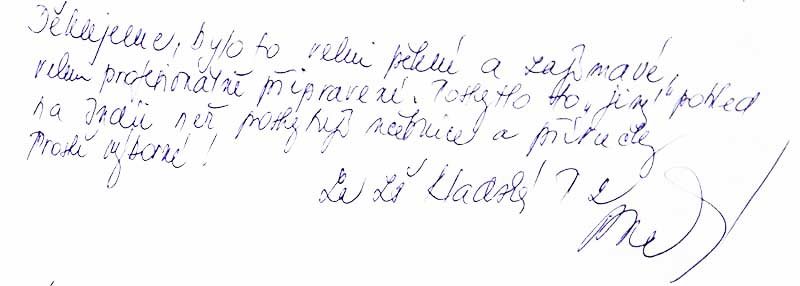 Děkujeme, bylo to velmi pěkné a zajímavé,
velmi profesionálně připravené. Poskytlo to „jiný“ pohled
na Indii než poskytují učebnice a příručky
Prostě výborné!
Za ZŠ Kladská